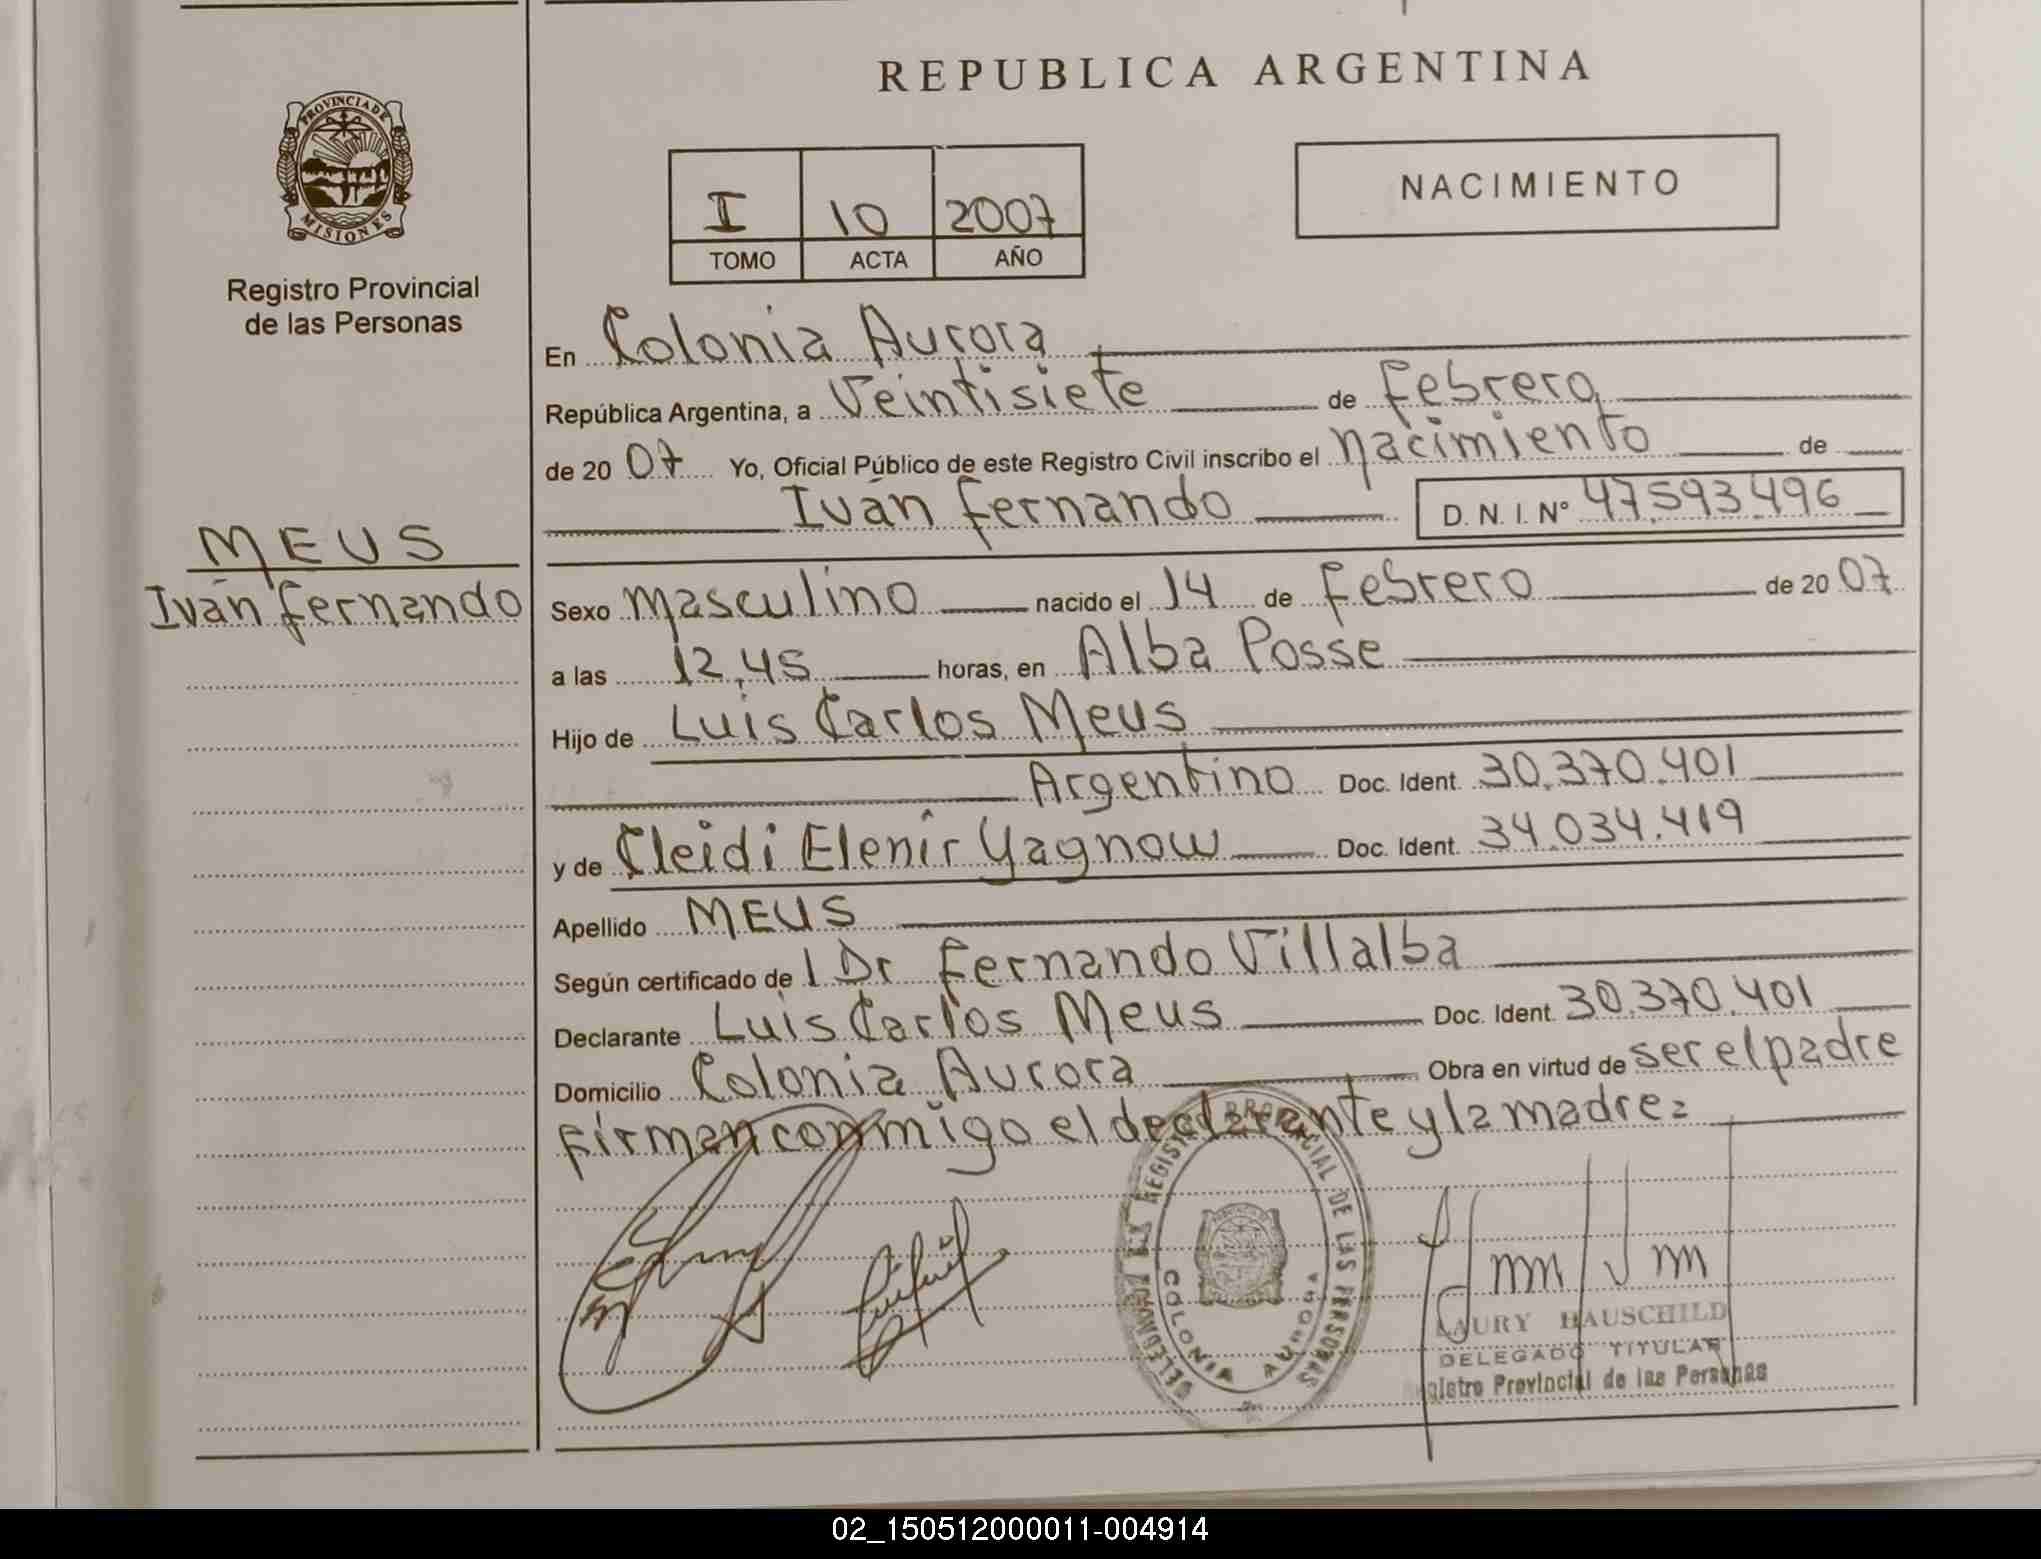 REPUBLICA ARGENTINA
PROVINCIA DE MISIONES
Registro Provincial
de las Personas
I 10 2007
TOMO ACTA AÑO
NACIMIENTO
En Colonia Aurora
República Argentina, a Veintisiete de Febrero
de 20 07 Yo, Oficial Público de este Registro Civil inscribo el nacimiento de
Iván Fernando D. N. I. Nº 47.593.496
MEUS
Iván Fernando
Sexo masculino nacido el 14 de Febrero de 20 07
a las 12,45 horas, en Alba Posse
Hijo de Luis Carlos Meus
Argentino Doc. Ident. 30.370.401
y de Cleidi Elenir Yagnow Doc. Ident. 34.034.419
Apellido MEUS
Según certificado de l Dr Fernando Villalba
Declarante Luis Carlos Meus Doc. Ident. 30.370.401
Domicilio Colonia Aurora Obra en virtud de ser el padre
firman conmigo el declarante y la madre=
REGISTRO PROVINCIAL DE LAS PERSONAS
COLONIA AURORA
LAURY HAUSCHILD
DELEGADO TITULAR
Registro Provincial de las Personas
02_150512000011-004914